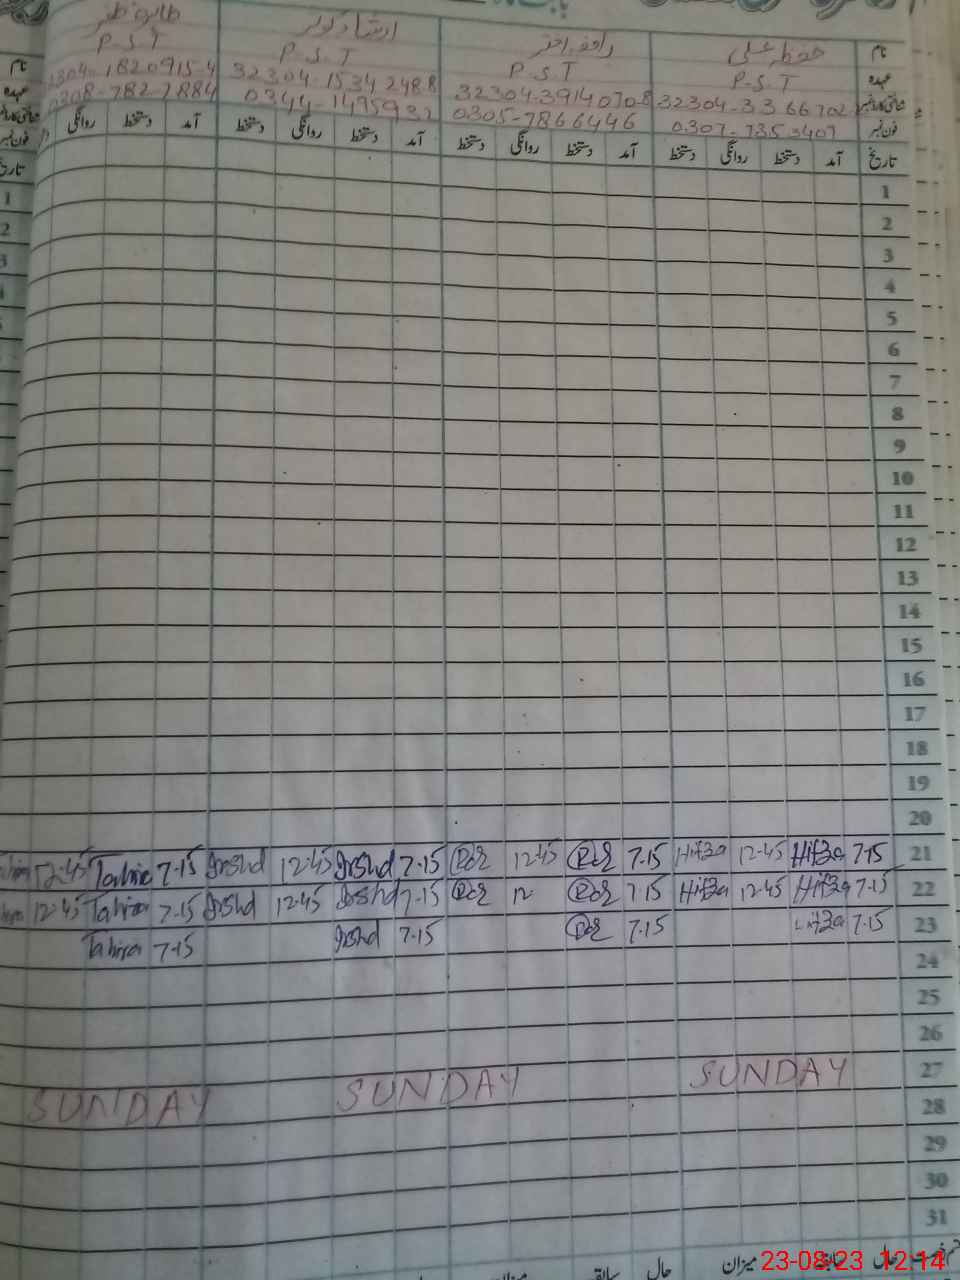 نام حفظہ علی رافعہ اختر ارشاد کوثر طاہرہ ظفر
عہدہ P.S.T P.S.T P.S.T P.S.T
شناختی کارڈ نمبر 32304-3914070-8 32304-1534248-8
فون نمبر 0307-7353407 0305-7866446 0344-1495932 0308-7827884
تاریخ آمد دستخط روانگی دستخط آمد دستخط روانگی دستخط آمد دستخط روانگی دستخط آمد دستخط روانگی
1
2
3
4
5
6
7
8
9
10
11
12
13
14
15
16
17
18
19
20
21 7-15 Hifza 12-45 Hifza 7-15 12-45 7-15 Irshd 12-45 Irshd 7-15 Tahira 12-45
22 7-15 Hifza 12-45 Hifza 7-15 12- 7-15 Irshd 12-45 Irshd 7-15 Tahira 12-45
23 7-15 Hifza 7-15 7-15 Irshd 7-15 Tahira
24
25
26
27 SUNDAY SUNDAY SUNDAY
28
29
30
31
حال سابقہ میزان حال سابقہ میزان
23-08-23 12:14